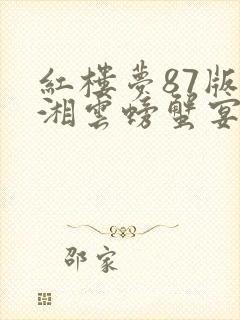 紅樓夢87版
湘雲螃蟹宴
邵家